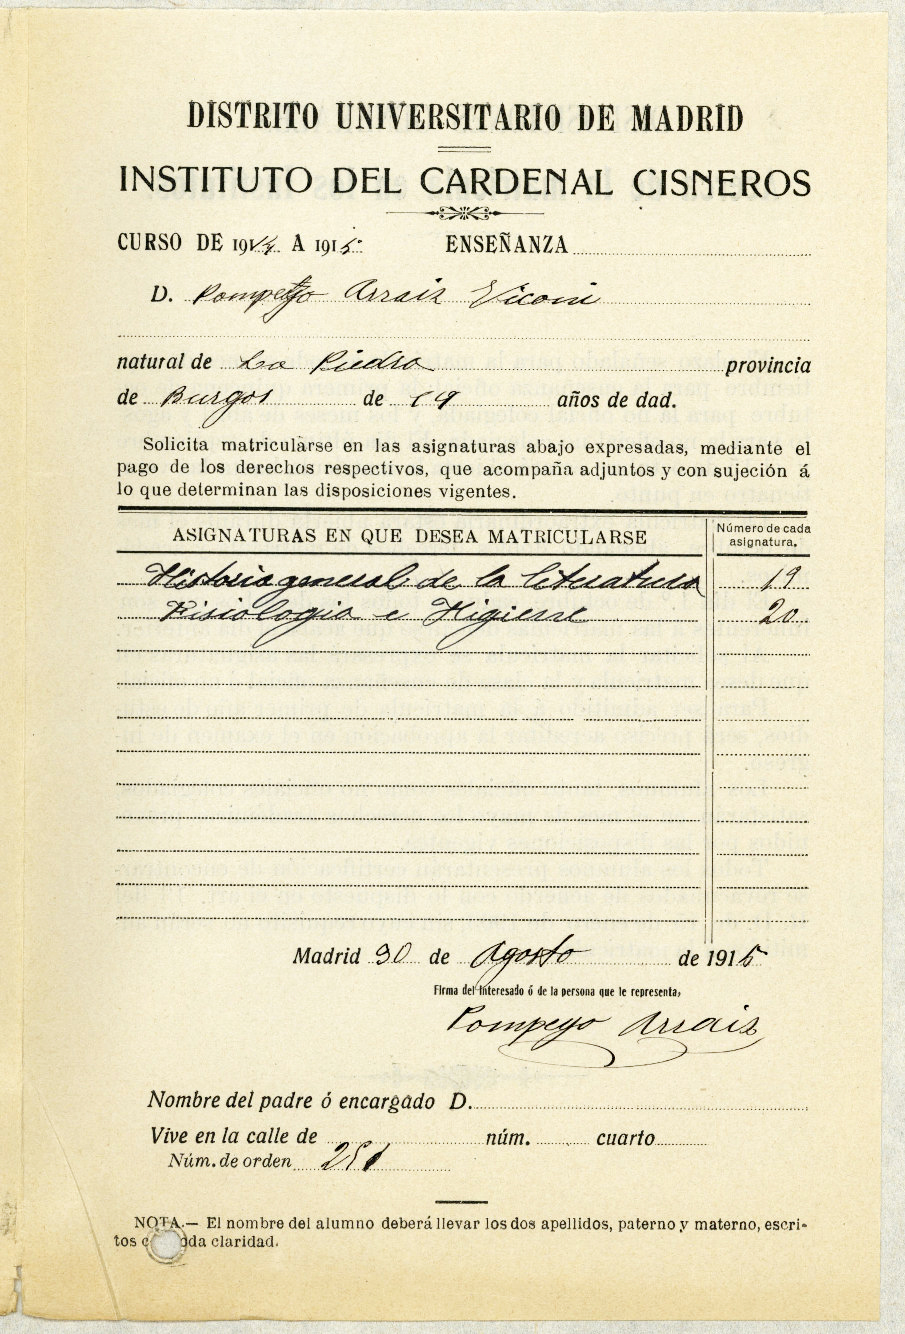 DISTRITO UNIVERSITARIO DE MADRID
INSTITUTO DEL CARDENAL CISNEROS
CURSO DE 1914 A 1915 ENSEÑANZA
D. Pompeyo Arraiz Viconi
natural de La Piedra provincia
de Burgos de 19 años de dad.
Solicita matricularse en las asignaturas abajo expresadas, mediante el
pago de los derechos respectivos, que acompaña adjuntos y con sujeción á
lo que determinan las disposiciones vigentes.
ASIGNATURAS EN QUE DESEA MATRICULARSE Número de cada
asignatura.
Historia general de la literatura 19
Fisiologia e Higiene 20
Madrid 30 de Agosto de 1915
Firma del interesado ó de la persona que le representa,
Pompeyo Arraiz
Nombre del padre ó encargado D.
Vive en la calle de núm. cuarto
Núm. de orden 251
NOTA.— El nombre del alumno deberá llevar los dos apellidos, paterno y materno, escri-
tos c oda claridad.